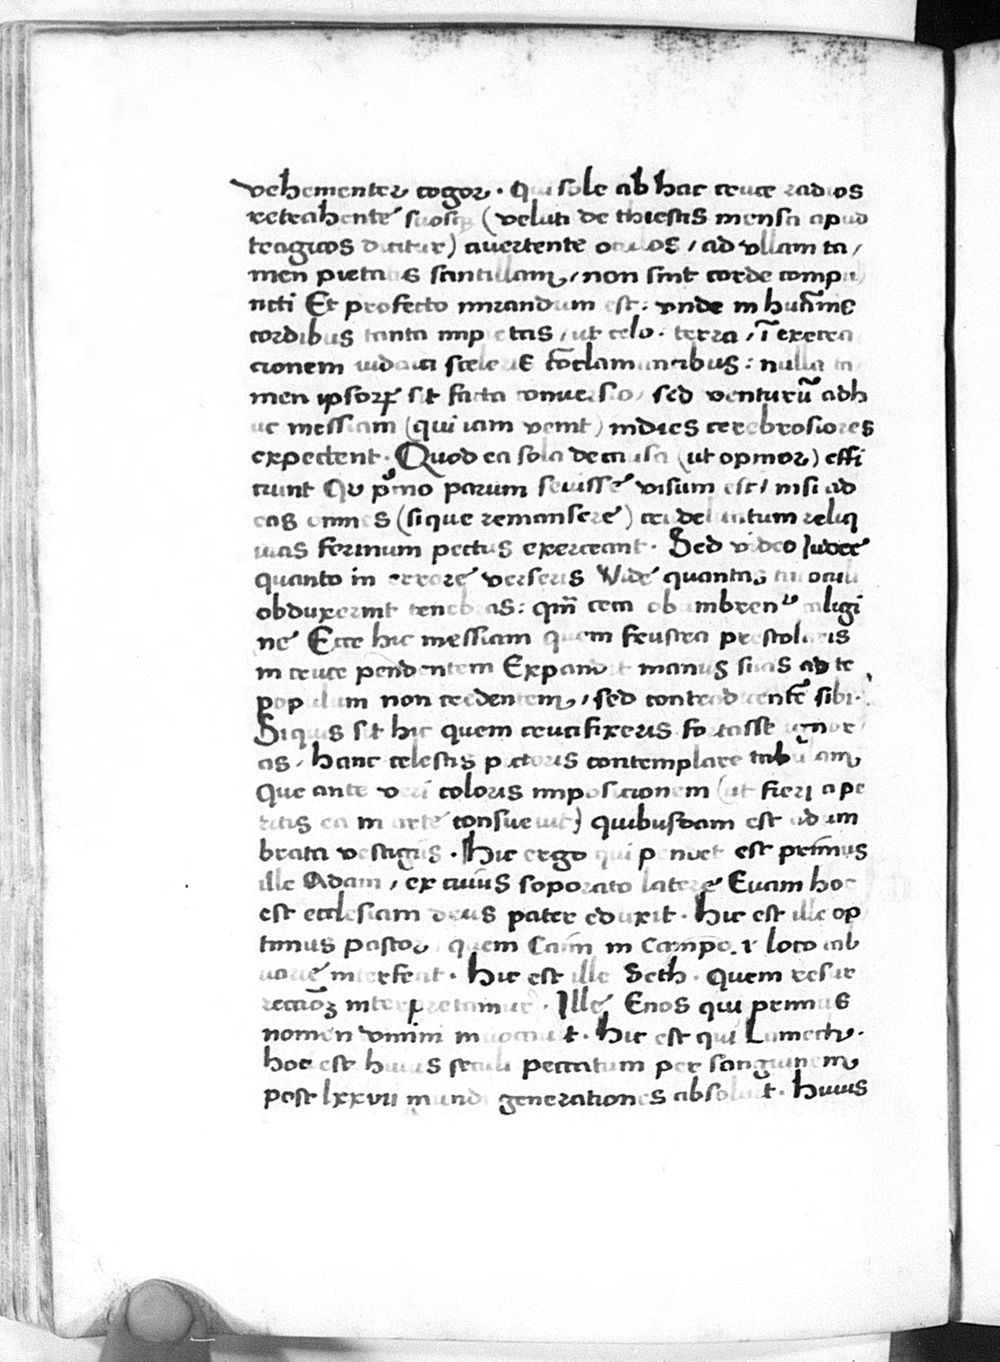 vehementer cogor. Qui sole ab hac cruce radios
retrahente suosq (veluti de thiestis mensa apud
tragicos dicitur) avertente oculos / ad ullam ta/
men pietatis scintillam, non sint corde compu/
ncti Et profecto mirandum est: unde in huanis
cordibus tanta impietas, ut celo. terra, i execra
cionem iudaici sceleris coclamantibus: nulla ta
men ipsorꝝ sit facta conversio, sed venturū adh
uc messiam (qui iam venit) indies cerebrosiores
expectent. Quod ea sola de causa (ut opinor) effi
ciunt Qꝫ pͥmo parum sevisse visum est, nisi ad
eas omnes (si que remansere) crudelitatum reliq
uias ferinum pectus exerceant. Sed video Iudee
quanto in errore verseris Vide quantas tui oculi
obduxerint tenebras: qm̄ ceca obumbrent caligi
ne Ecce hic messiam quem frustra prestolaris
in cruce pendentem Expandit manus suas ad te
populum non credentem, sed contradicente sibi.
Si quis sit hic quem crucifixeris fortasse ignor
as, hanc celestis pictoris contemplare tabulam
Que ante veri coloris imposicionem (ut fieri a pe
ritis ea in arte consuevit) quibusdam est adum
brata vestigiis. Hic ergo qui pendet est primus
ille Adam, ex cuius soporato latere Evam hoc
est ecclesiam deus pater eduxit. Hic est ille op
timus pastor quem Caim in Campo. et loco ab
Hic est ille Seth. Quem resur
reccioꝫ interpretamur. Ille Enos qui primus
nomen domini invocavit. Hic est qui Lamech.
hoc est huius seculi peccatum per sanguinem
post lxxvii mundi generationes absolvit. Huius